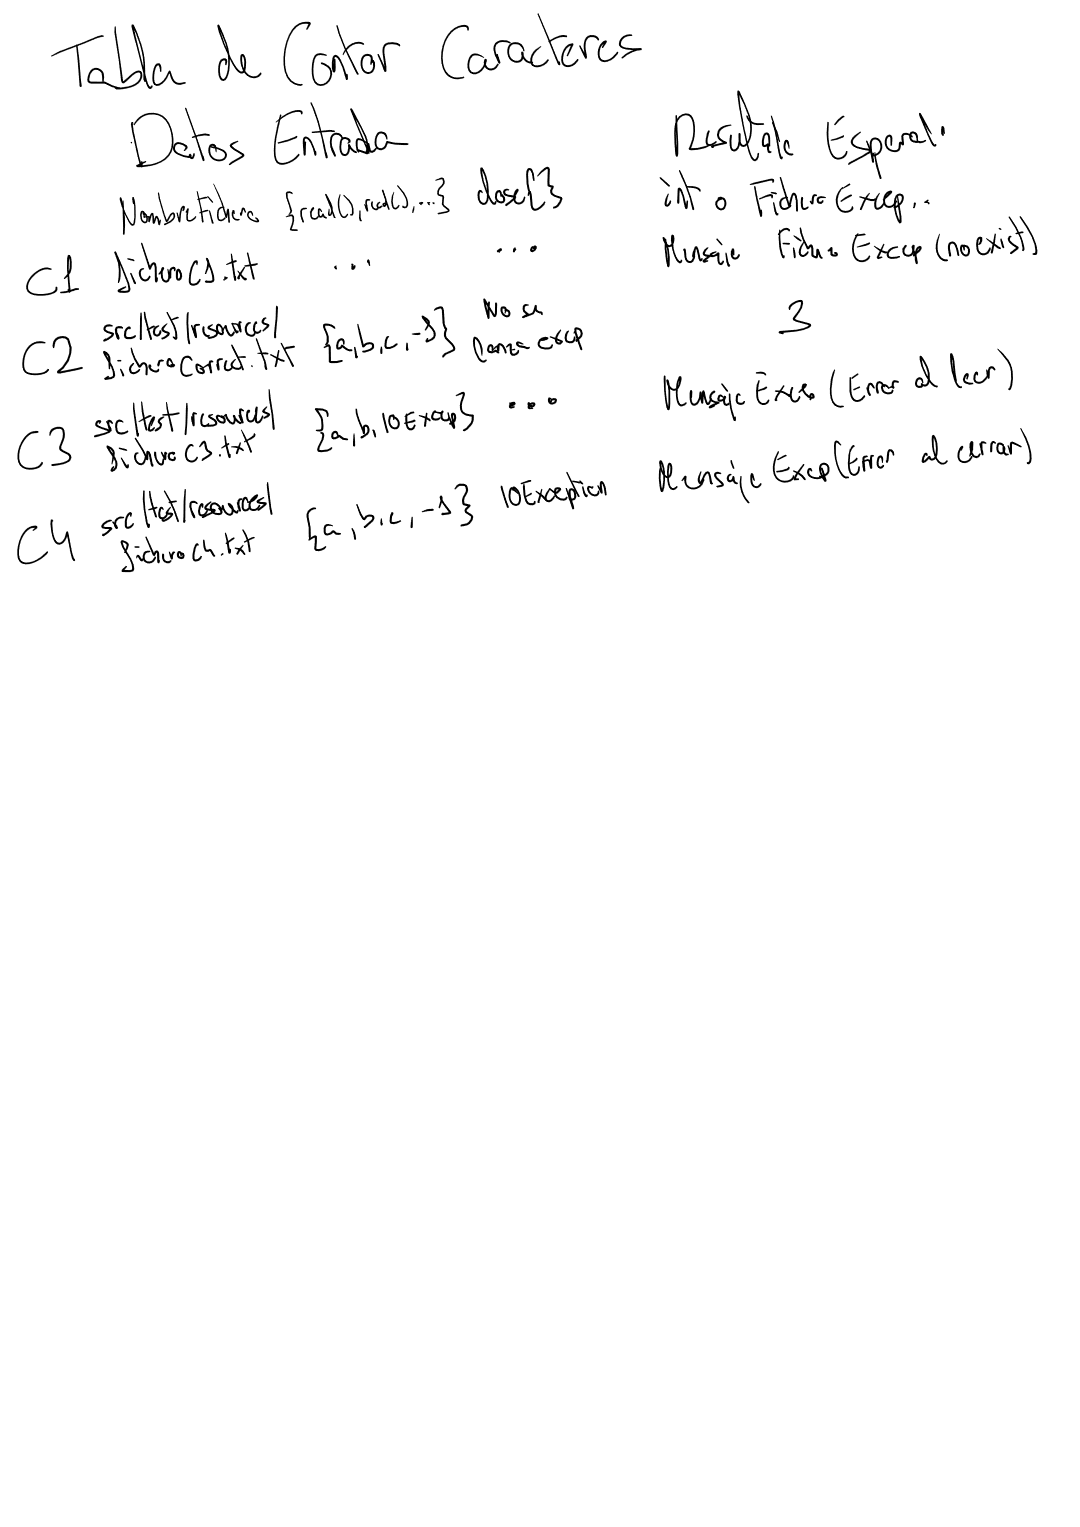 Tabla de Contar Caracteres
Datos Entrada Resultado Esperad.
NombreFichero {read(),read(),...} close{} int o Fichero Excep..
C1 ficheroC1.txt ... ... Mensaje Fichero Excep (no exist)
C2 src/test/resources/ficheroCorrect.txt {a,b,c,-1} No se lanza excep 3
C3 src/test/resources/ficheroC3.txt {a,b,IOExcep} ... Mensaje Excep (Error al leer)
C4 src/test/resources/ficheroC4.txt {a,b,c,-1} IOException Mensaje Excep (Error al cerrar)